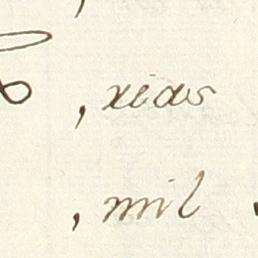 , xias
, mil